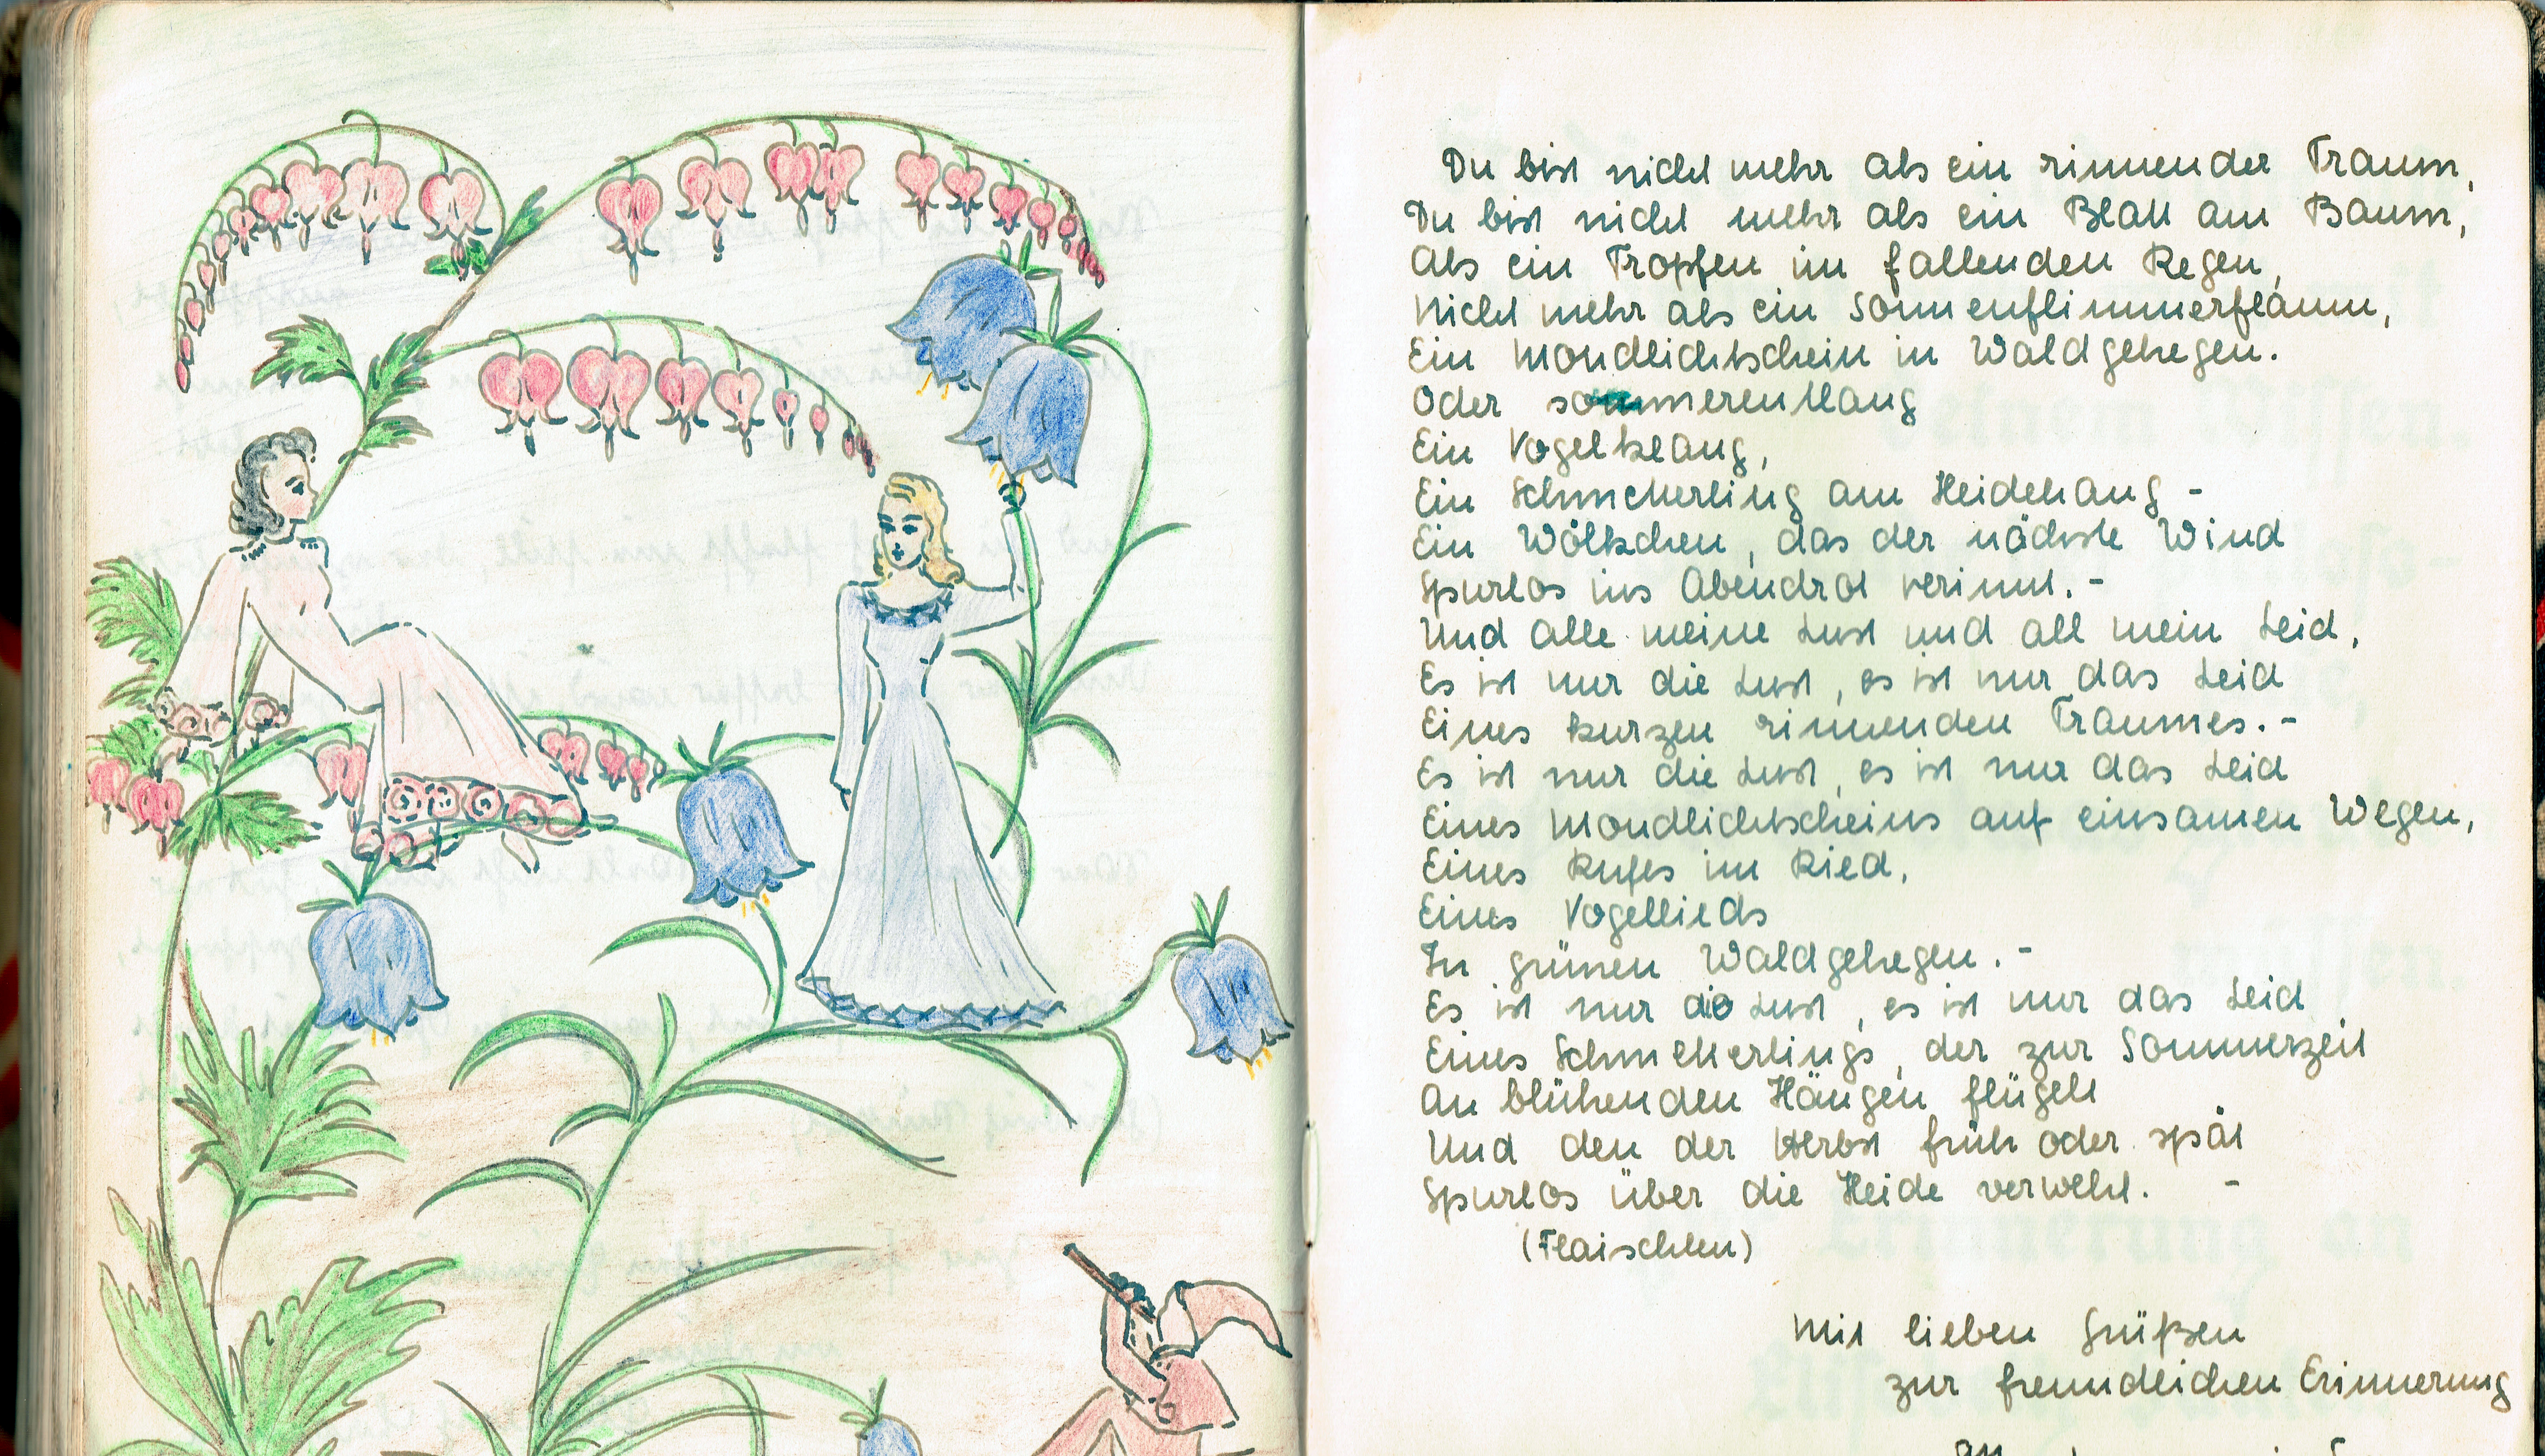 Du bist nicht mehr als ein rinnender Traum,
Du bist nicht mehr als ein Blatt am Baum,
Als ein Tropfen im fallenden Regen,
Nicht mehr als ein Sonnenflimmerflaum,
Ein Mondlichtschein in Waldgehegen.
Oder sommerentlang
Ein Vogelklang,
Ein Schmetterling am Heidehang -
Ein Wölkchen, das der nächste Wind
Spurlos ins Abendrot verinnt. -
Und alle meine Lust und all mein Leid,
Es ist nur die Lust, es ist nur das Leid
Eines kurzen rinnenden Traumes. -
Es ist nur die Lust, es ist nur das Leid
Eines Mondlichtscheins auf einsamen Wegen,
Eines Rufes im Ried,
Eines Vogellieds
In grünen Waldgehegen. -
Es ist nur die Lust, es ist nur das Leid
Eines Schmetterlings, der zur Sommerzeit
An blühenden Hängen flügelt
Und den der Herbst früh oder spät
Spurlos über die Heide verweht. -
(Flaischlen)
Mit lieben Grüßen
zur freundlichen Erinnerung